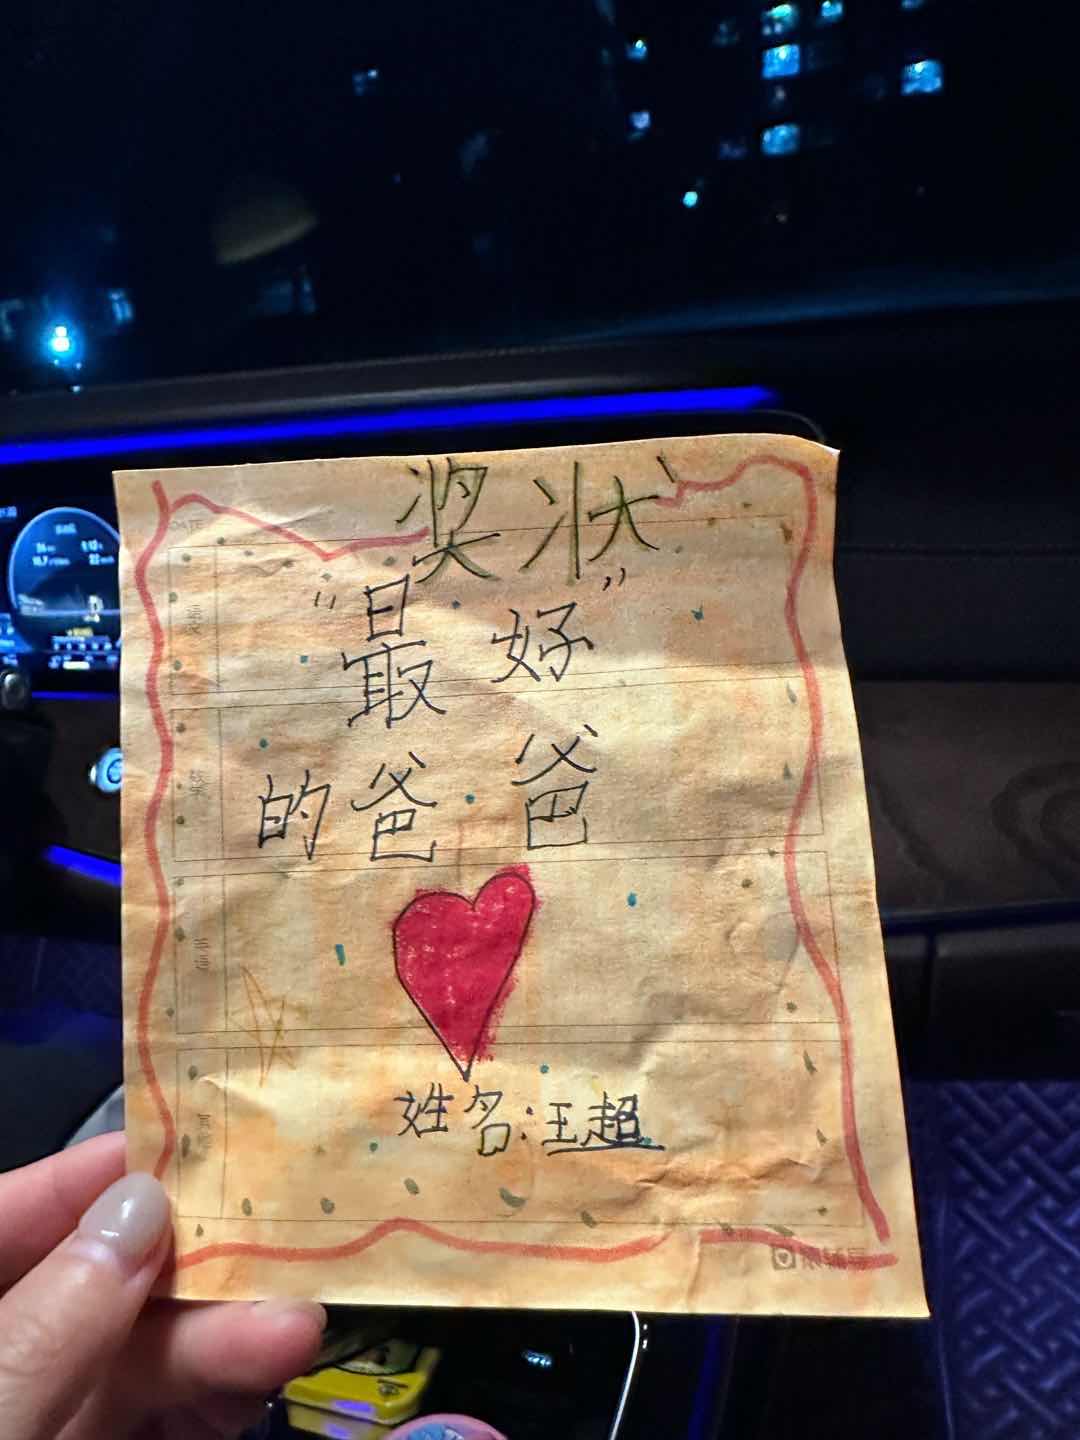 奖状
"最好"
的爸爸
姓名:王超